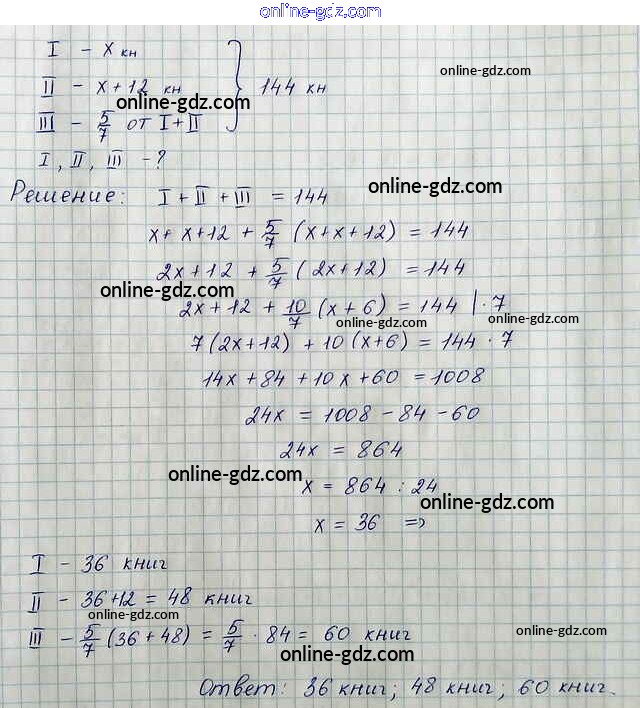 online-gdz.com
I - x кн
online-gdz.com
II - x+12 кн } 144 кн
online-gdz.com
III - 5/7 от I+II
I, II, III - ?
online-gdz.com
Решение: I + II + III = 144
x + x+12 + 5/7 (x+x+12) = 144
2x+12 + 5/7 (2x+12) = 144
online-gdz.com
2x+12 + 10/7 (x+6) = 144 | · 7
online-gdz.com
online-gdz.com
7(2x+12) + 10(x+6) = 144 · 7
14x+84+10x+60 = 1008
24x = 1008-84-60
24x = 864
online-gdz.com
x = 864 : 24
online-gdz.com
x = 36 =>
I - 36 книг
II - 36+12 = 48 книг
online-gdz.com
III - 5/7 (36+48) = 5/7 · 84 = 60 книг
online-gdz.com
online-gdz.com
Ответ: 36 книг; 48 книг; 60 книг.